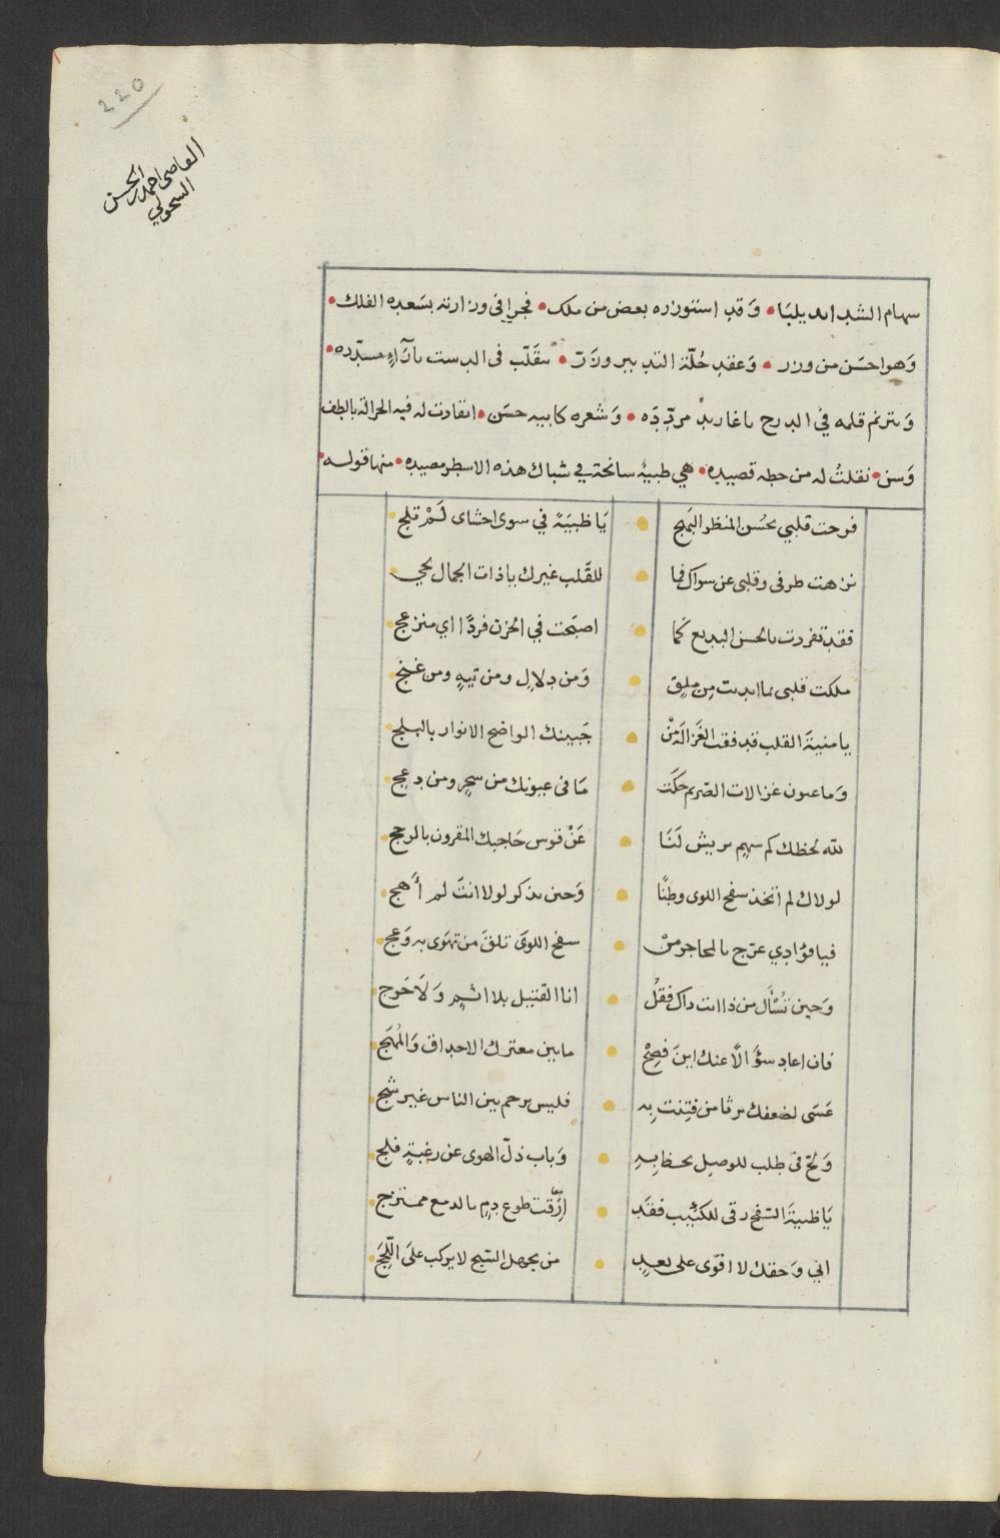 220
القاضي احمد بن الحسن
السحولي
سهام الشدايد يلبا • وَقد استوزره بعض من ملك • فجرا في وزارته بسَعده الفلك •
وَهو احسَن من وزر • وَعقد حُلّة التدبير وزرّ • يتقلّب في الدست بآراءٍ مسدّده •
وَيترنم قلمه في الدرج باغاريد مردّدَه • وَشعره كابيه حسَن • انقادت له فيه الجزالة باللطف
وَسن • نقلتُ له من خطه قصيده • هي ظبية سانحة في شباك هذه الاسطر مصيده • منها قوله •
فرحت قلبي بحُسن المنظر البَهج • يَا ظبيَة في سوى احشاى لَمْ تلج •
نزهت طرفى وقلبى عن سواك فما • للقَلب غيرك ياذات الجمال يجي •
فقد تفردت بالحسن البديع كما • اصبَحت في الحزن فردًا اي منزعج •
ملكت قلبى بما ابديت مِن مَلِق • وَمن دلالٍ ومن تيهٍ ومن غنج •
يا منيةَ القلب قد فقت الغَزالةَ مْن • جَبينك الواضح الانوار بالبلج •
وَما عيون غزالات الصّريم حكَت • مَا فى عيونك من سحرٍ ومن دعج •
لله لحظك كم سهمٍ يريش لَنَا • عَنْ قوس حَاجبك المقرون بالزجج •
لولاك لم اتخذ سفح اللوى وطنًا • وَحين يذكر لولا انتَ لم أهج •
فيا فؤادي عرّج بالمحاجر منْ • سفح اللوَى تلقَ من تهوَى به وَعج •
وَحين تُسْأل من ذا انت ذاك فقُل • انا القتيل بلا اثمٍ وَلَا حَرج •
فان اعاد سؤَالًا عنك اينَ فَصِحْ • مابين معترك الاحداق وَالمُهَج •
عَسَى لضعفك يرثا من فتِنت بِه • فليس يرحم بين الناس غير شج •
وَلجّ في طلب للوصل تحظ بِهِ • وَباب ذلّ الهوى عن رغبةٍ فلج •
يَا ظبيةَ السّفح رقى للكئيب فقَد • ارَّقت طوع دمٍ بالدمع ممتزج •
اني وَحقك لا اقوَى على بعدٍ • من يجهل السّبح لا يركب علَى اللّججَ •